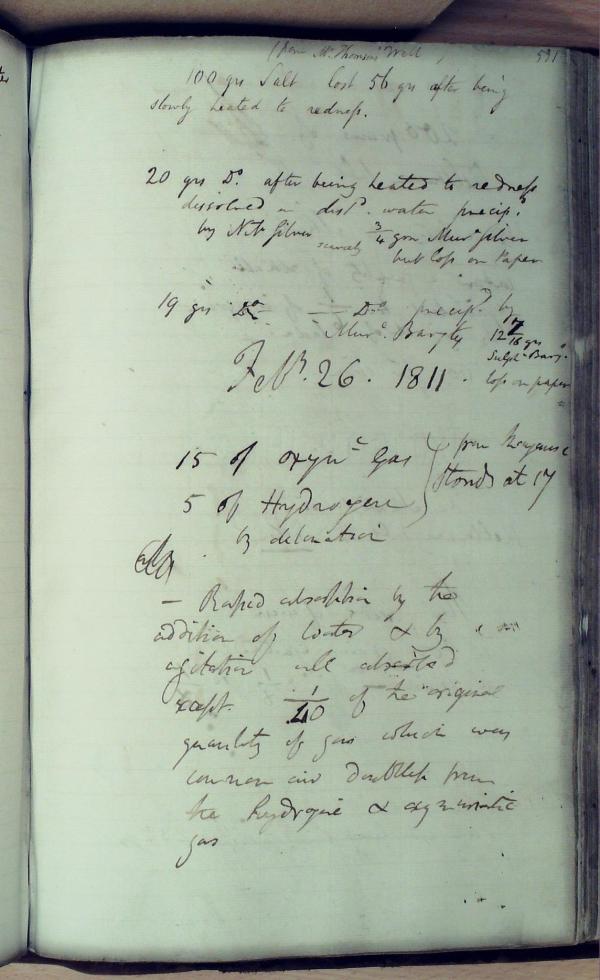 (from Mr. Thomsons Well) 591
100 grs Salt lost 56 grs after being
slowly heated to redness.
20 grs Do. after being heated to redness
dissolved in distd. water precip.
by Nit. Silver scarcely 3/4 grn Murc Silver
but loss on Paper
19 grs Do — Do precipd by
Murc. Barytes 12 grs
Sulph Bary.
Feby. 26. 1811. loss on paper
15 of oxymc Gas } from Manganese
5 of Hydrogene } stands at 17
by detonation
— Rapid absorption by the
addition of water & by
agitation, all absorbed
except 1/40 of the original
quantity of gas which was
common air doubtless from
the hydrogene & oxymuriatic
gas